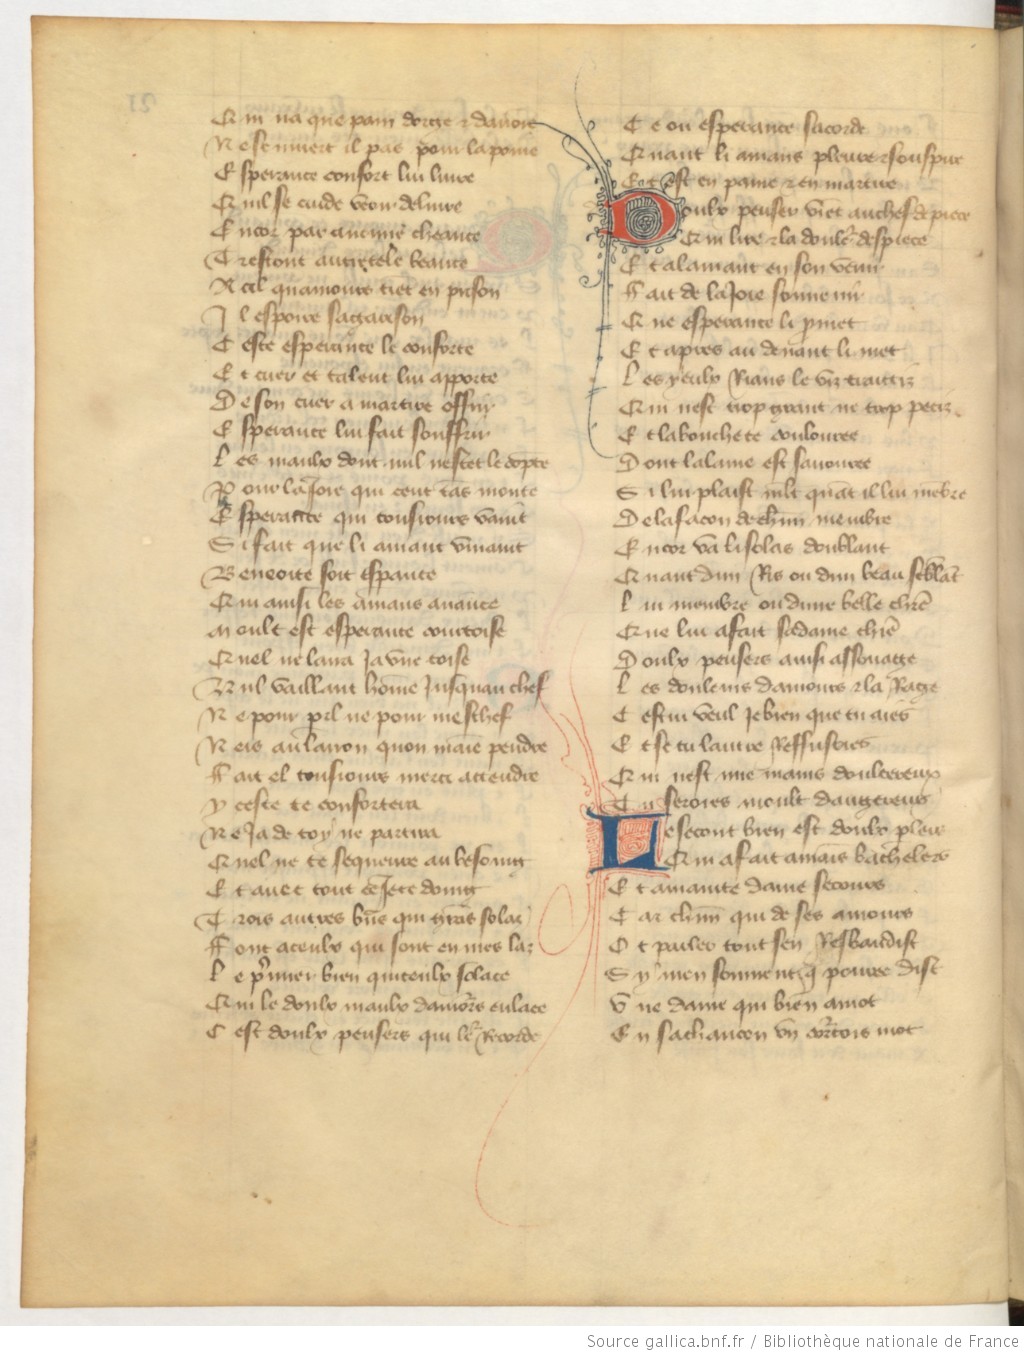 Qui na que pain dorge et davoine
Ne se muert il pas pour la poine
Esperance confort lui livre
Quil se cuide veoir delivre
Encor par aucune cheance
Trestout autretele beance
A cil quamours tiet en prison
Il espoire sa garison
Ceste esperance le conforte
Et cuer et talent lui apporte
De son cuer a martire offrir
Esperance lui fait souffrir
Les maulx dont nul ne scet le compte
Pour la Joie qui cent tas monte
Esperance qui tousiours vaint
Si fait que li amant vivaint
Benoite soit espance
Qui ainsi les amans avance
Moult est esperance courtoise
Quel ne laira Ja une toise
Nul vaillant homme Jusquau chef
Ne pour pil ne pour meschef
Neis au larron quon maine pendre
Fait el tousiours merci attendre
Yceste te confortera
Ne Ja de toy ne partira
Quel ne te sequeure au besoing
Et avec tout ce Je te doing
Trois autres bns qui grans solaz
Font a ceulx qui sont en mes laz
Le pmier bien qui ceulx solace
Qui le doulx maulx damors enlace
Cest doulx pensers qui ler Recorde
Ce ou esperance sacorde
Quant li amans pleure et souspire
Et est en paine et en martire
Doulx penser vient au chef de piece
Qui lire et la douler despiece
Et a lamant en son venir
Fait de la Joie souvenir
Que esperance li pmet
Et apres au devant li met
Les yeulx Rians le viz traittiz
Qui nest trop grant ne trop petiz
Et la bouchete coulouree
Dont lalaine est savouree
Si lui plaist mlt quat il lui mebre
De la facon de chun membre
Encor va li solas doublant
Quant dun Ris ou dun beau seblat
Lui membre ou dune belle chie
Que lui a fait sa dame chie
Doulx pensers ainsi assouage
Les douleurs damours et la Rage
Cestui veul Je bien que tu aies
Et se tu lautre Reffusoies
Qui nest mie mains doulcereux
Tu seroies moult dangereus
Le secont bien est doulx pleir
Qui a fait a mais bachelers
Et a mainte dame secours
Car chun qui de ses amours
Ot parler tout sen Resbaudist
Sy men souvient q pource dist
Une dame qui bien amot
En sa chancon un cortois mot
21
Source gallica.bnf.fr / Bibliothèque nationale de France